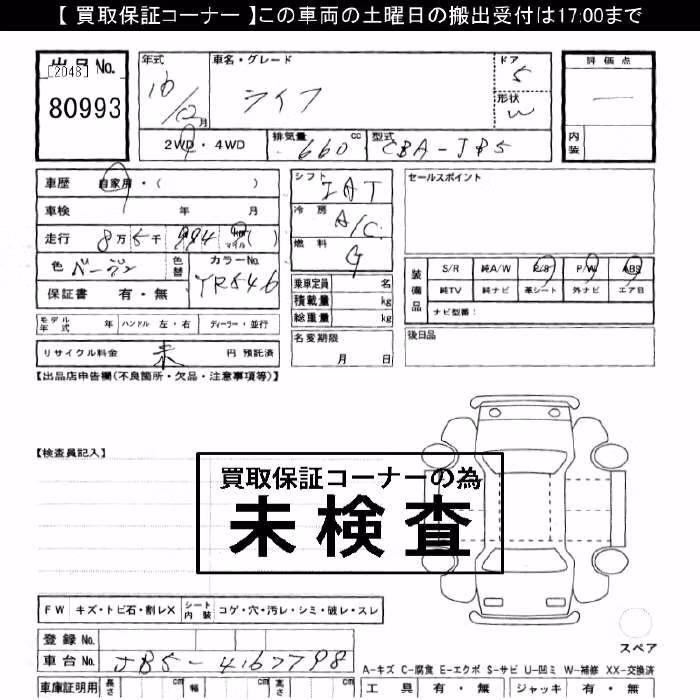 【 買取保証コーナー 】この車両の土曜日の搬出受付は17:00まで
出品 No.
[2048]
80993
年式
16/12月
車名・グレード
ライフ
ドア
5
形状
W
評価点
—
内装
2WD・4WD
排気量 660 cc
型式 CBA-JB5
車歴 自家用・( )
車検 年 月
走行 8万 5千 994 km マイル ( )
色 ベージュ
色替
カラー No.
YR546
保証書 有・無
シフト
IAT
冷房
A/C
燃料
G
乗車定員 名
積載量 kg
総重量 kg
セールスポイント
装備品
S/R 純A/W P/S P/W ABS
純TV 純ナビ 革シート 外ナビ エア B
ナビ型番:
モデル年式 年 ハンドル 左・右 ディーラー・並行
名変期限
月 日
後日品
リサイクル料金 未 円 預託済
【出品店申告欄(不良箇所・欠品・注意事項等)】
【検査員記入】
買取保証コーナーの為
未検査
FW キズ・トビ石・割レX シート内装 コゲ・穴・汚レ・シミ・破レ・スレ
スペア
登録 No.
車台 No. JB5-4167798
A-キズ C-腐食 E-エクボ S-サビ U-凹ミ W-補修 XX-交換済
車庫証明用 長さ cm 幅 cm 高さ cm
工具 有・無 ジャッキ 有・無